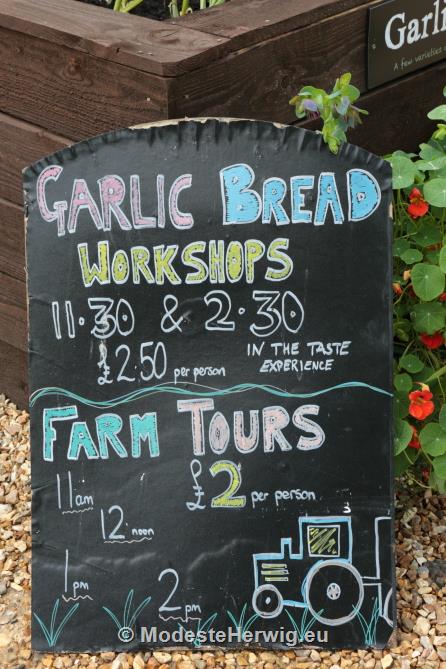 Garli
A few varieties
GARLIC BREAD
WORKSHOPS
11.30 & 2.30
£2.50 per person
IN THE TASTE
EXPERIENCE
FARM TOURS
11am
£2 per person
12 noon
3
1pm
2pm
© ModesteHerwig.eu